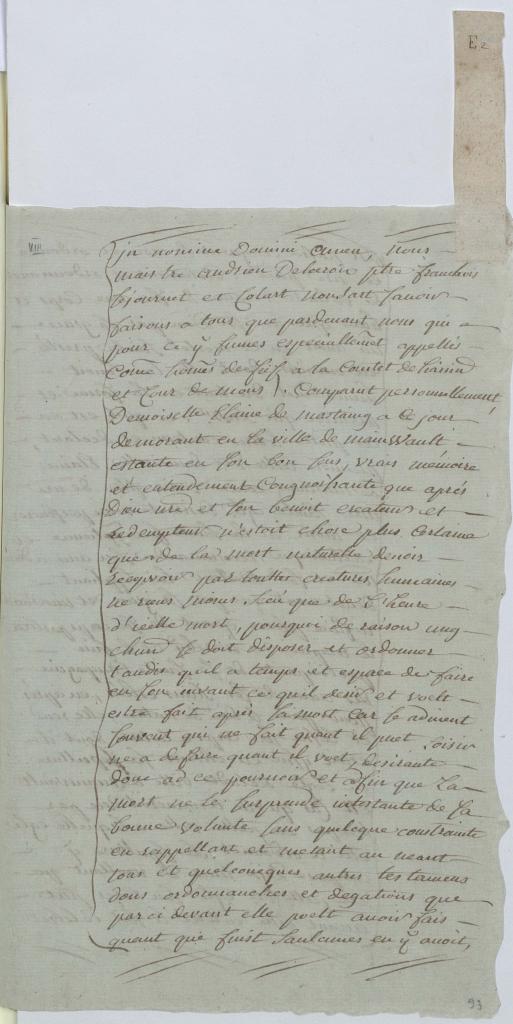 E 2
VIII
In nomine Domini amen, nous
maistre Andrieu Delecroix ptre franchois
Sejournet et Colart nonsart savoir
faisons a tous que pardevant nous qui
pour ce y fumes especiallement appellés
come homes de fief a la Comtet de hainau
et Cour de mons, Comparut personnellement
Demoiselle Elaine de mastaing a ce jour
demorant en la ville de mainwault
estante en son bon sens, vraie mémoire
et entendement Congnoissante que aprés
Dieu nre et son benoit createur et
redempteur n'estoit chose plus certaine
que de la mort naturelle devoir
recepvoir par touttes creatures humaines
ne riens moins sceu que de l'heure
d'icelle mort, pourquoi de raison ung
chacun se doit disposer et ordonner
tandis qu'il a temps et espace de faire
en son vivant ce qu'il desir et voelt
estre fait aprés sa mort car le advient
souvent qui ne fait quant il puet loisir
ne a de faire quant il voet, desirante
donc ad ce pourveoir et afin que la
mort ne le surprende intestante de sa
bonne volunte sans quelque constrainte
en rappellant et metant au neant
tous et quelconcques autres testamens
dons ordonnanches et que
par ci devant elle poelt avoir fais
quant que fuist en y avoit,
93